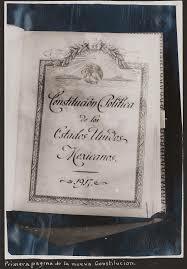 Constitución Política
de los
Estados Unidos
Mexicanos.
1917.
Primera pagina de la nueva Constitucion.